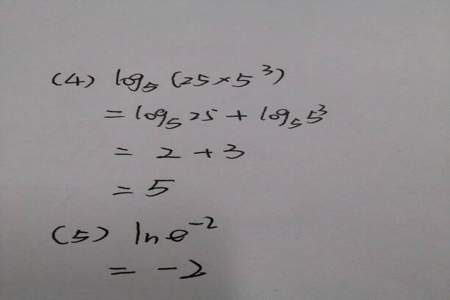 (4) log₅ (25×5³)
= log₅ 25 + log₅ 5³
= 2 + 3
= 5
(5) ln e⁻²
= -2